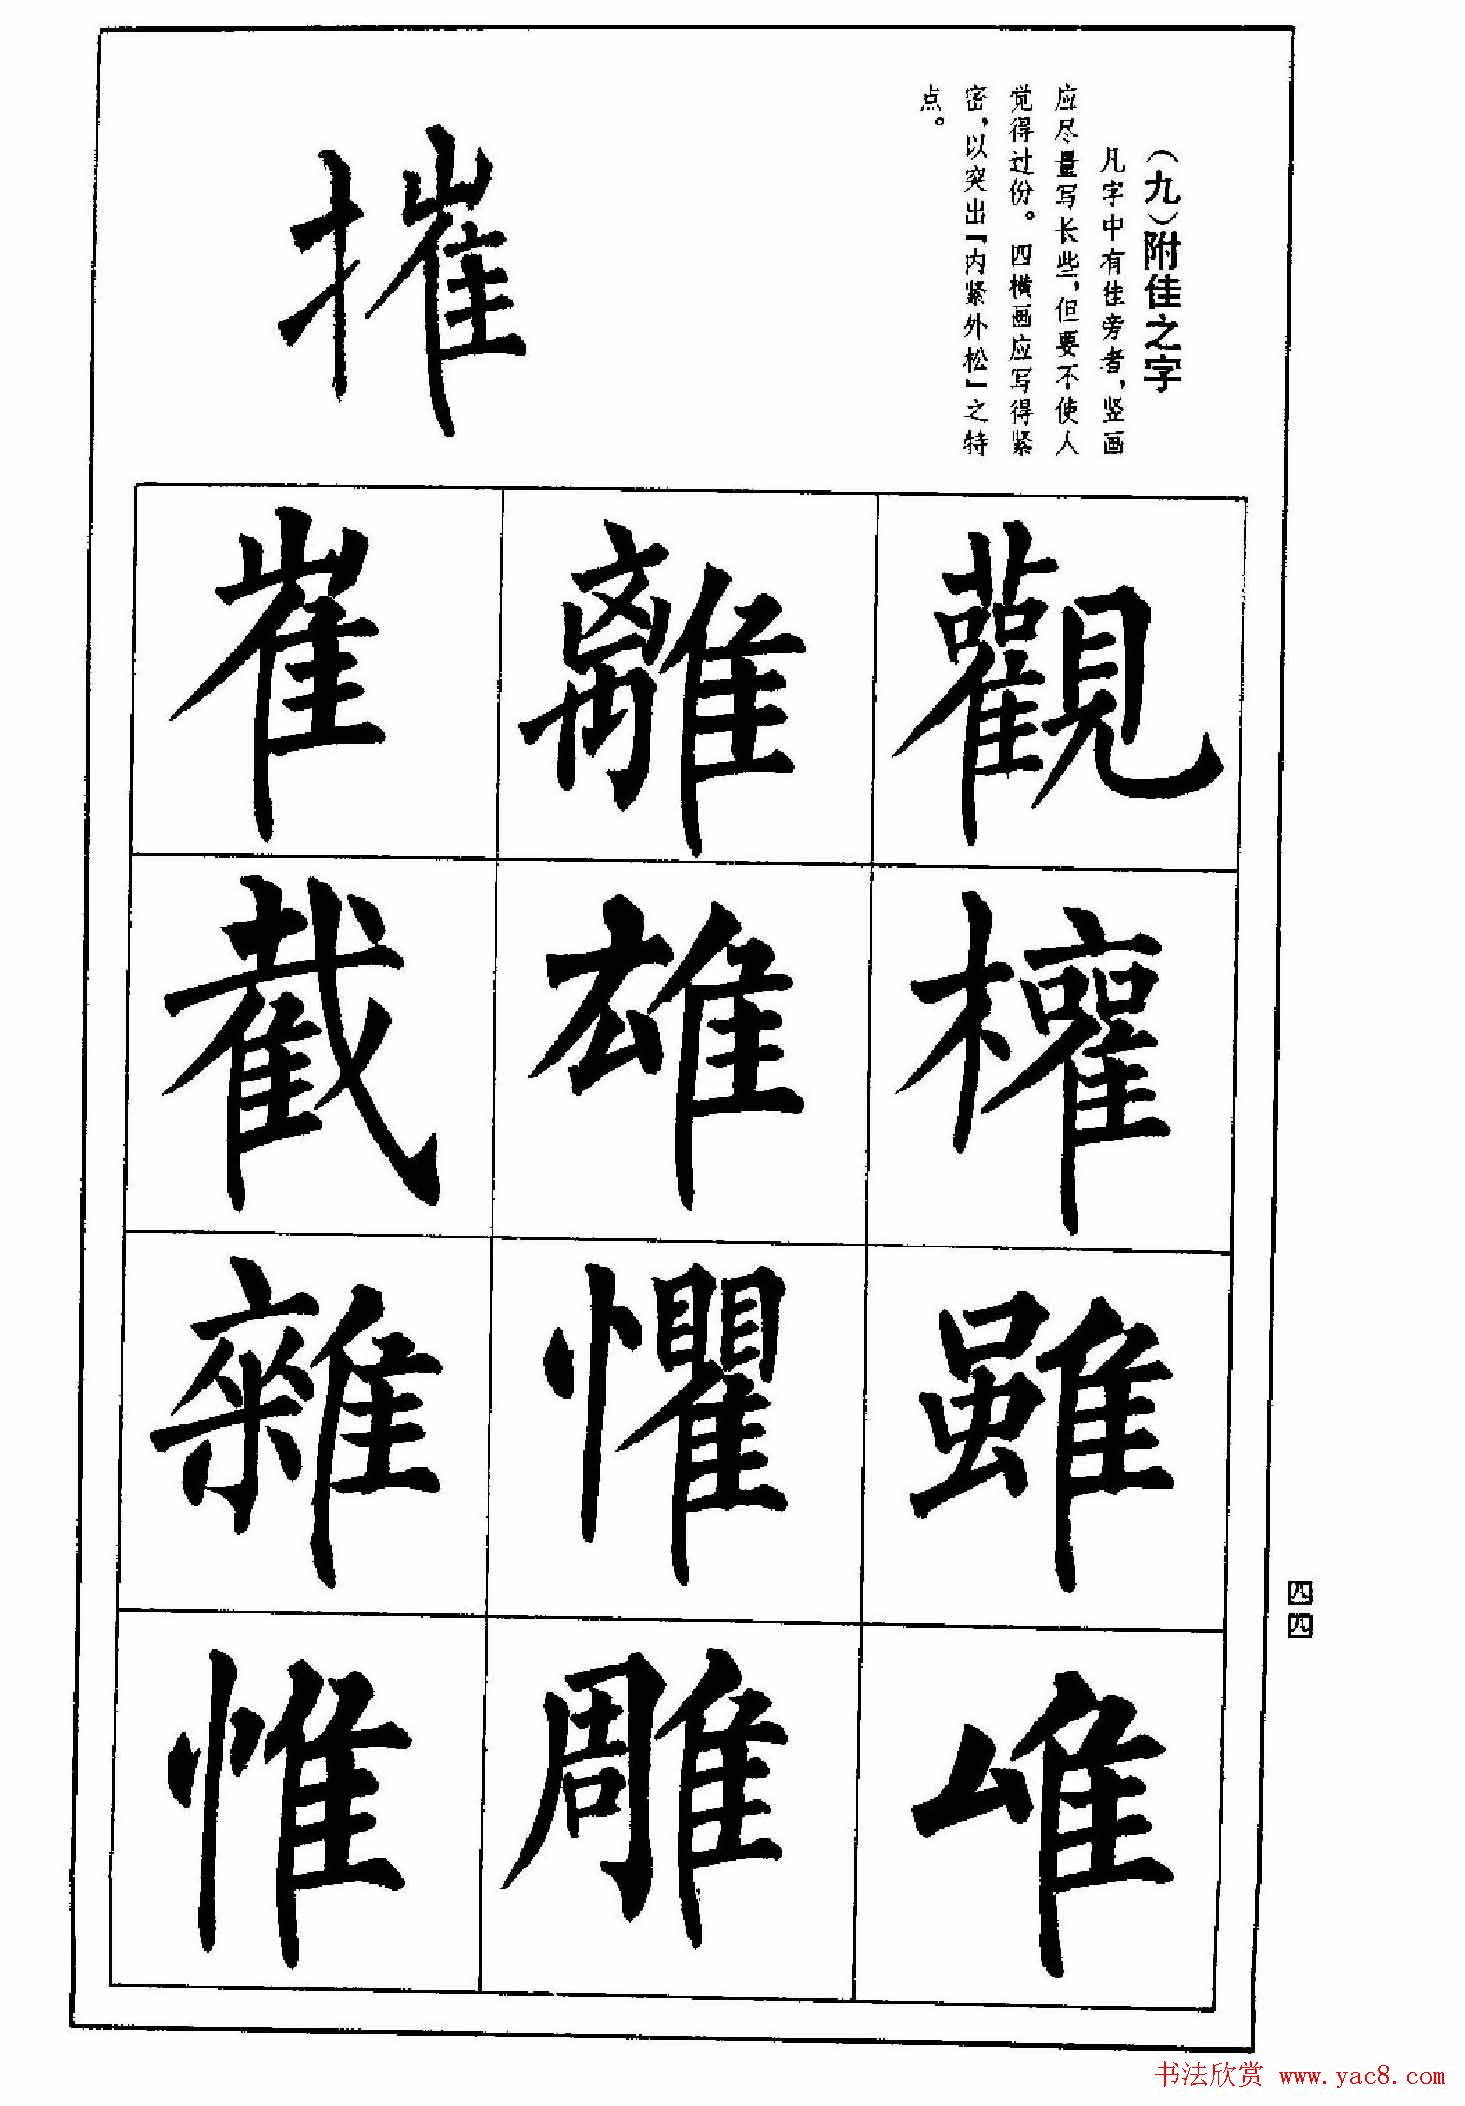 （九）附佳之字
凡字中有佳旁者，竖画
应尽量写长些，但要不使人
觉得过份。四横画应写得紧
密，以突出「内紧外松」之特
点。
摧
觀權雖唯
離雄懼雕
崔截雜惟
四四
书法欣赏 www.yac8.com